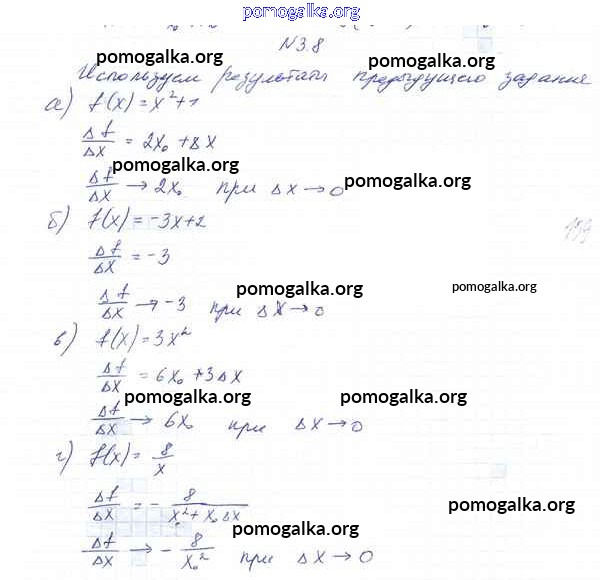 pomogalka.org
N3.8
pomogalka.org pomogalka.org
Используем результаты предыдущего задание
а) f(x) = x²+1
Δf/Δx = 2x₀ + Δx
pomogalka.org
Δf/Δx → 2x₀ при Δx → 0
pomogalka.org
б) f(x) = -3x+2
Δf/Δx = -3
139
pomogalka.org pomogalka.org
Δf/Δx → -3 при Δx → 0
в) f(x) = 3x²
Δf/Δx = 6x₀ + 3Δx
pomogalka.org pomogalka.org
Δf/Δx → 6x₀ при Δx → 0
г) f(x) = 8/x
Δf/Δx = - 8/(x₀² + x₀Δx)
pomogalka.org
pomogalka.org
Δf/Δx → - 8/x₀² при Δx → 0